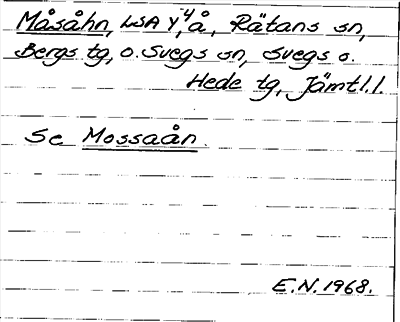 Måsåhn, LSA Y,4 å, Rätans sn,
Bergs tg, o. Svegs sn, Svegs o.
Hede tg, Jämtl.l.
Se Mossaån.
E.N. 1968.